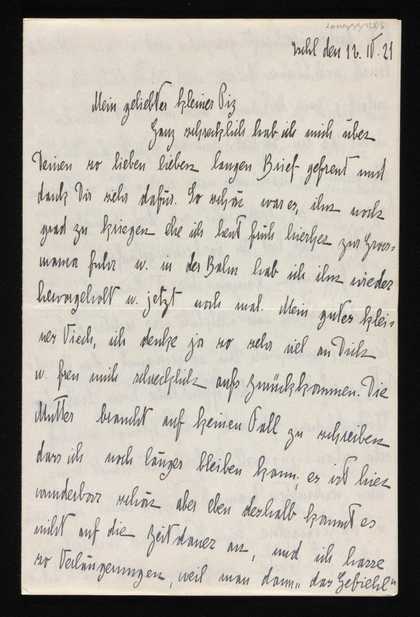 Ischl den 12. IV. 21
Mein geliebter kleiner Piz
Ganz schrecklich hab ich mich über
Deinen so lieben lieben langen Brief gefreut und
dank Dir sehr dafür. So schön war es, ihn noch
grad zu kriegen ehe ich heut früh hierher zur Gross-
mama fuhr u. in der Bahn hab ich ihn wieder
hervorgeholt u. jetzt noch mal. Mein guter klei-
ner Viech, ich denke ja so sehr viel an Dich
u. freu mich schrecklich aufs Zurückkommen. Die
Mutter braucht auf keinen Fall zu schreiben
dass ich noch länger bleiben kann, es ist hier
wunderbar schön aber eben deshalb kommt es
nicht auf die Zeitdauer an, und ich hasse
so Verlängerungen, weil man dann „das Gefühl"